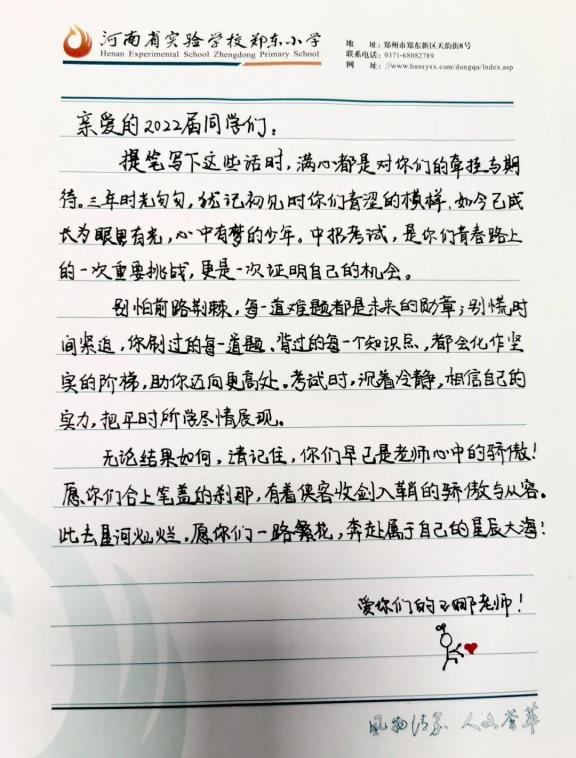 河南省实验学校郑东小学
Henan Experimental School Zhengdong Primary School
地 址：郑州市郑东新区天韵街8号
联系电话：0371-68082789
网 址：http://www.hnssyxx.com/dongqu/Index.asp
亲爱的2022届同学们：
提笔写下这些话时，满心都是对你们的牵挂与期
待。三年时光匆匆，犹记初见时你们青涩的模样，如今已成
长为眼里有光，心中有梦的少年。中招考试，是你们青春路上
的一次重要挑战，更是一次证明自己的机会。
别怕前路荆棘，每一道难题都是未来的勋章；别慌时
间紧迫，你刷过的每一道题、背过的每一个知识点，都会化作坚
实的阶梯，助你迈向更高处。考试时，沉着冷静，相信自己的
实力，把平时所学尽情展现。
无论结果如何，请记住，你们早已是老师心中的骄傲！
愿你们合上笔盖的刹那，有着侠客收剑入鞘的骄傲与从容。
此去星河灿烂，愿你们一路繁花，奔赴属于自己的星辰大海！
爱你们的王娜老师！
风物清嘉 人文荟萃